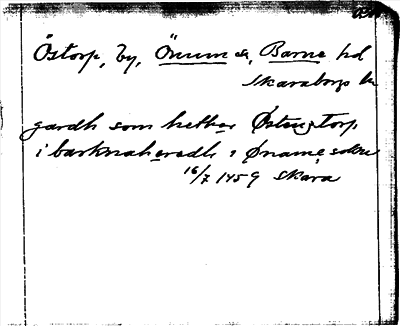 Östorp, by, Önum sn, Barne hd
Skaraborgs ln
gardh som hether Østen torp
i barknahæredh i Øname sokn
16/7 1459 Skara